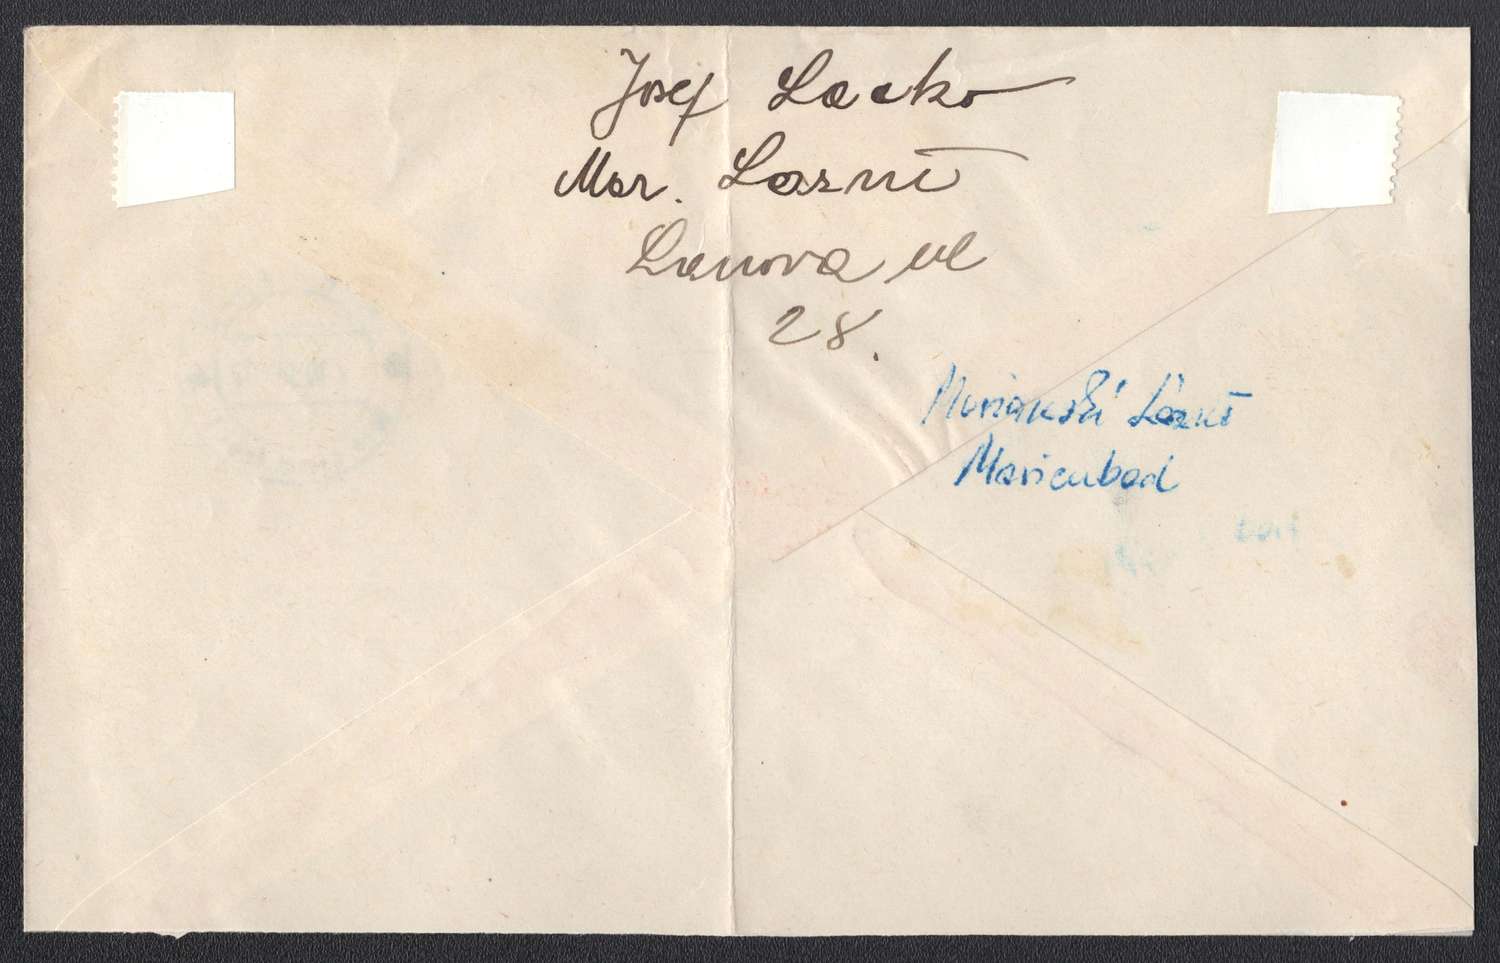 Josef Lacko
Mar. Lázně
Lanova ul
28.
Mariánské Lázně
Marienbad